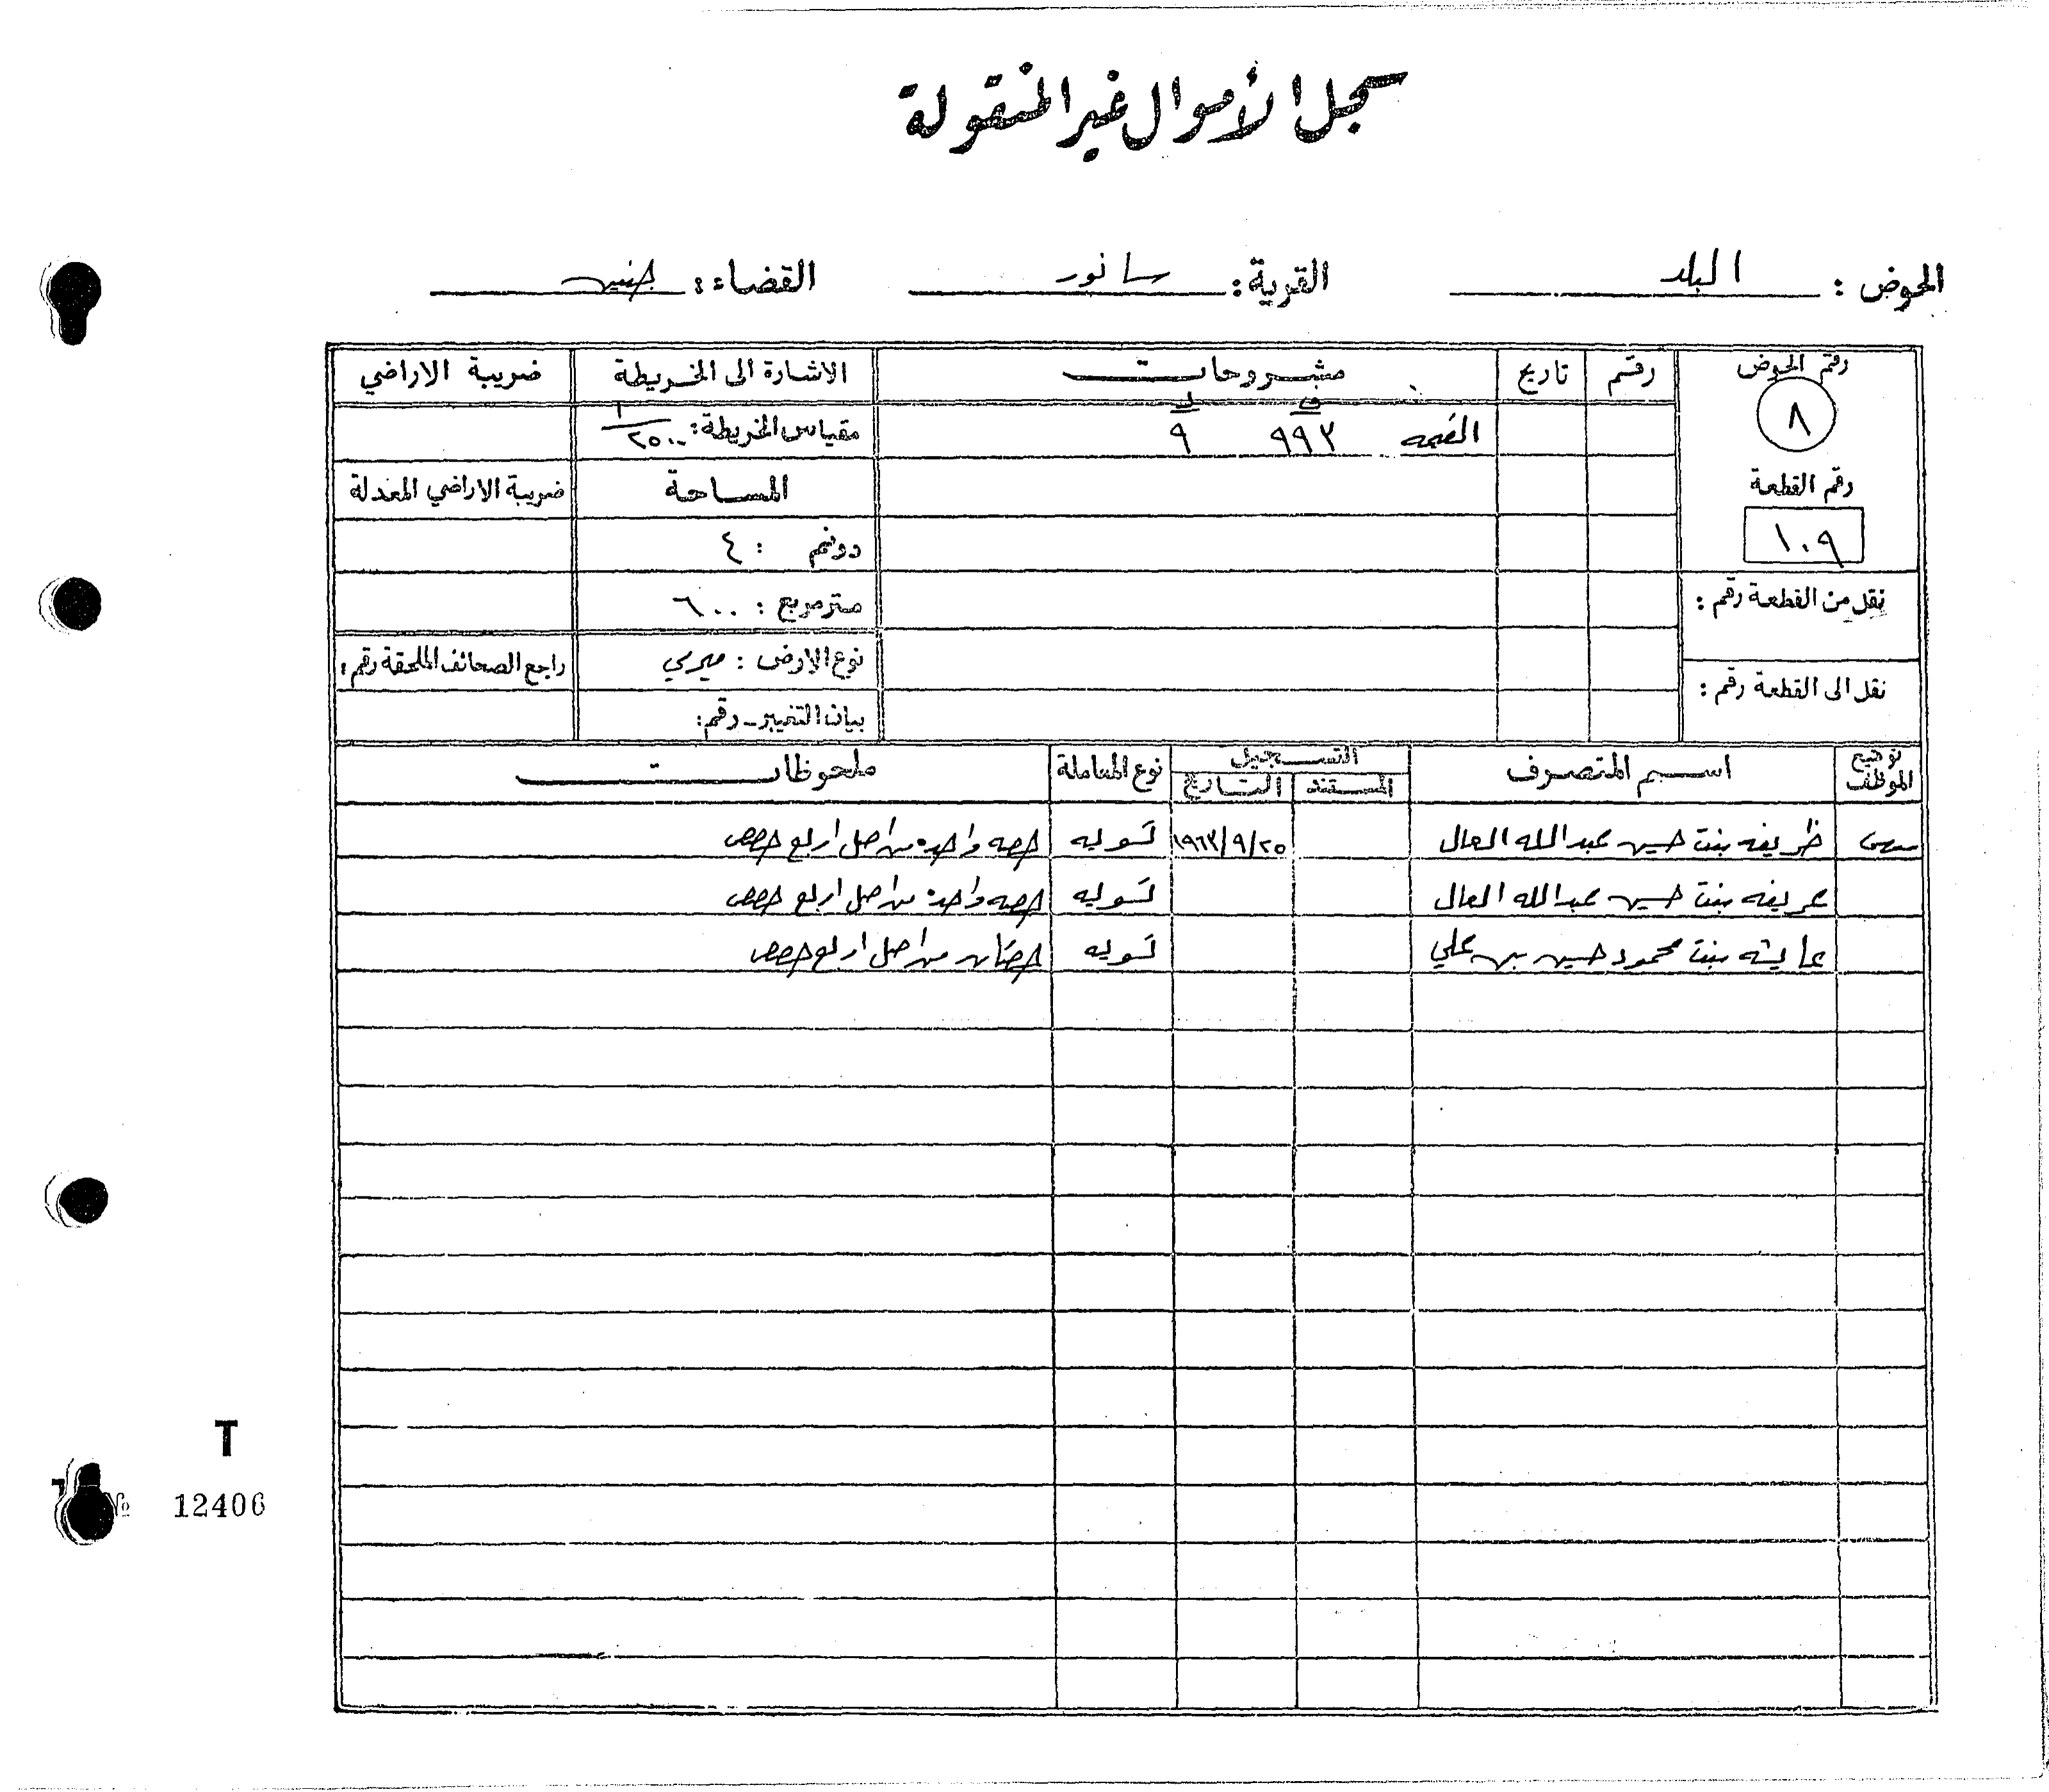 سجل الأموال غير المنقولة
الحوض : البلد القرية : سانور القضاء : جنين
رقم الحوض رقم تاريخ مشروحات الاشارة الى الخريطة ضريبة الاراضي
٨ ف د
القيمه ٩٩٣ ٩ مقياس الخريطة : ١/٢٥٠٠
رقم القطعة المساحة ضريبة الاراضي المعدلة
١٠٩ دونم : ٤
نقل من القطعة رقم : متر مربع : ٦٠٠
نوع الارض : ميري راجع الصحائف الملحقة رقم :
نقل الى القطعة رقم :
بيان التغيير - رقم :
توقيع الموظف اسم المتصرف التسجيل نوع المعاملة ملحوظات
المستند التاريخ
ظريفه بنت حسين عبدالله العال ٢٥/٩/١٩٦٣ تسويه حصه واحده من اصل اربع حصص
عريفه بنت حسين عبدالله العال تسويه حصه واحده من اصل اربع حصص
عايشه بنت محمود حسين بن علي تسويه حصتان من اصل اربع حصص
T
№ 12406